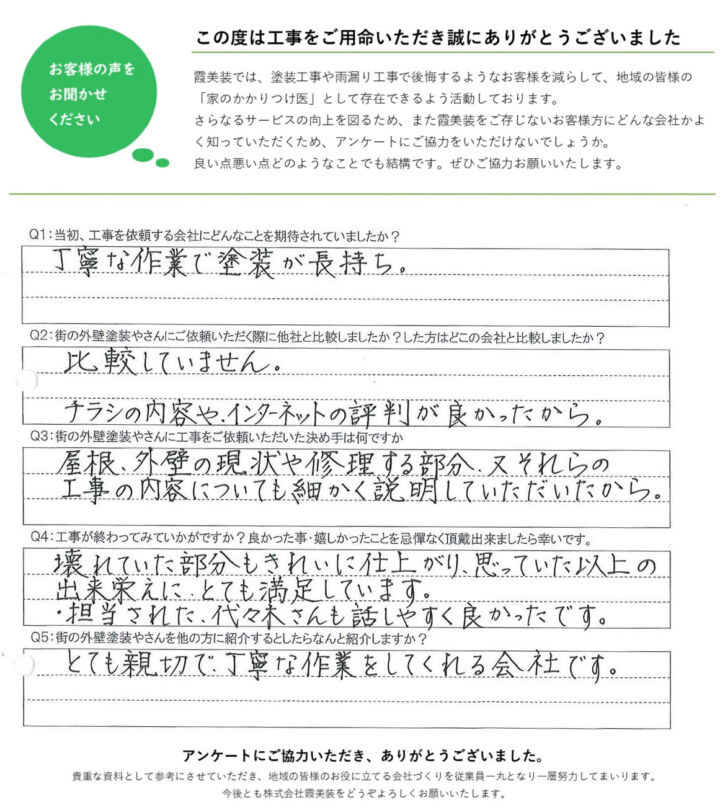 お客様の声を
お聞かせ
ください
この度は工事をご用命いただき誠にありがとうございました
霞美装では、塗装工事や雨漏り工事で後悔するようなお客様を減らして、地域の皆様の
「家のかかりつけ医」として存在できるよう活動しております。
さらなるサービスの向上を図るため、また霞美装をご存じないお客様方にどんな会社かよ
く知っていただくため、アンケートにご協力をいただけないでしょうか。
良い点悪い点どのようなことでも結構です。ぜひご協力お願いいたします。
Q1:当初、工事を依頼する会社にどんなことを期待されていましたか?
丁寧な作業で塗装が長持ち。
Q2:街の外壁塗装やさんにご依頼いただく際に他社と比較しましたか?した方はどこの会社と比較しましたか?
比較していません。
チラシの内容や、インターネットの評判が良かったから。
Q3:街の外壁塗装やさんに工事をご依頼いただいた決め手は何ですか
屋根、外壁の現状や修理する部分、又それらの
工事の内容についても細かく説明していただいたから。
Q4:工事が終わってみていかがですか?良かった事・嬉しかったことを忌憚なく頂戴出来ましたら幸いです。
壊れていた部分もきれいに仕上がり、思っていた以上の
出来栄えに、とても満足しています。
・担当された、代々木さんも話しやすく良かったです。
Q5:街の外壁塗装やさんを他の方に紹介するとしたらなんと紹介しますか?
とても親切で、丁寧な作業をしてくれる会社です。
アンケートにご協力いただき、ありがとうございました。
貴重な資料として参考にさせていただき、地域の皆様のお役に立てる会社づくりを従業員一丸となり一層努力してまいります。
今後とも株式会社霞美装をどうぞよろしくお願いいたします。